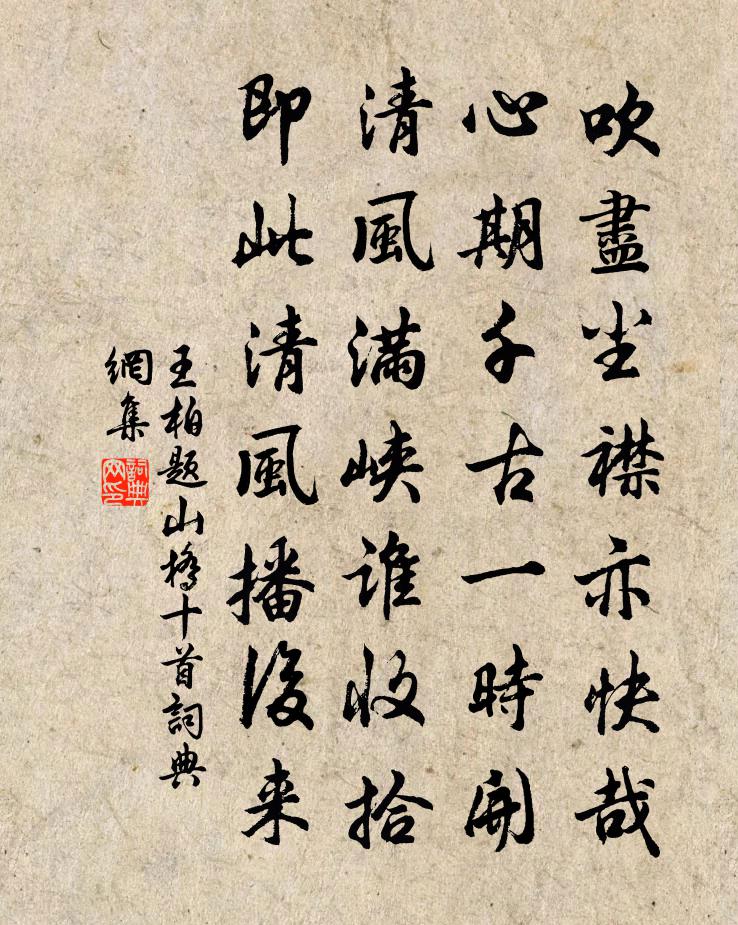 吹盡尘襟亦快哉
心期千古一時開
清風滿峽誰收拾
即此清風播後来
王柏题山橋十首詞典
網集
詞典
网印